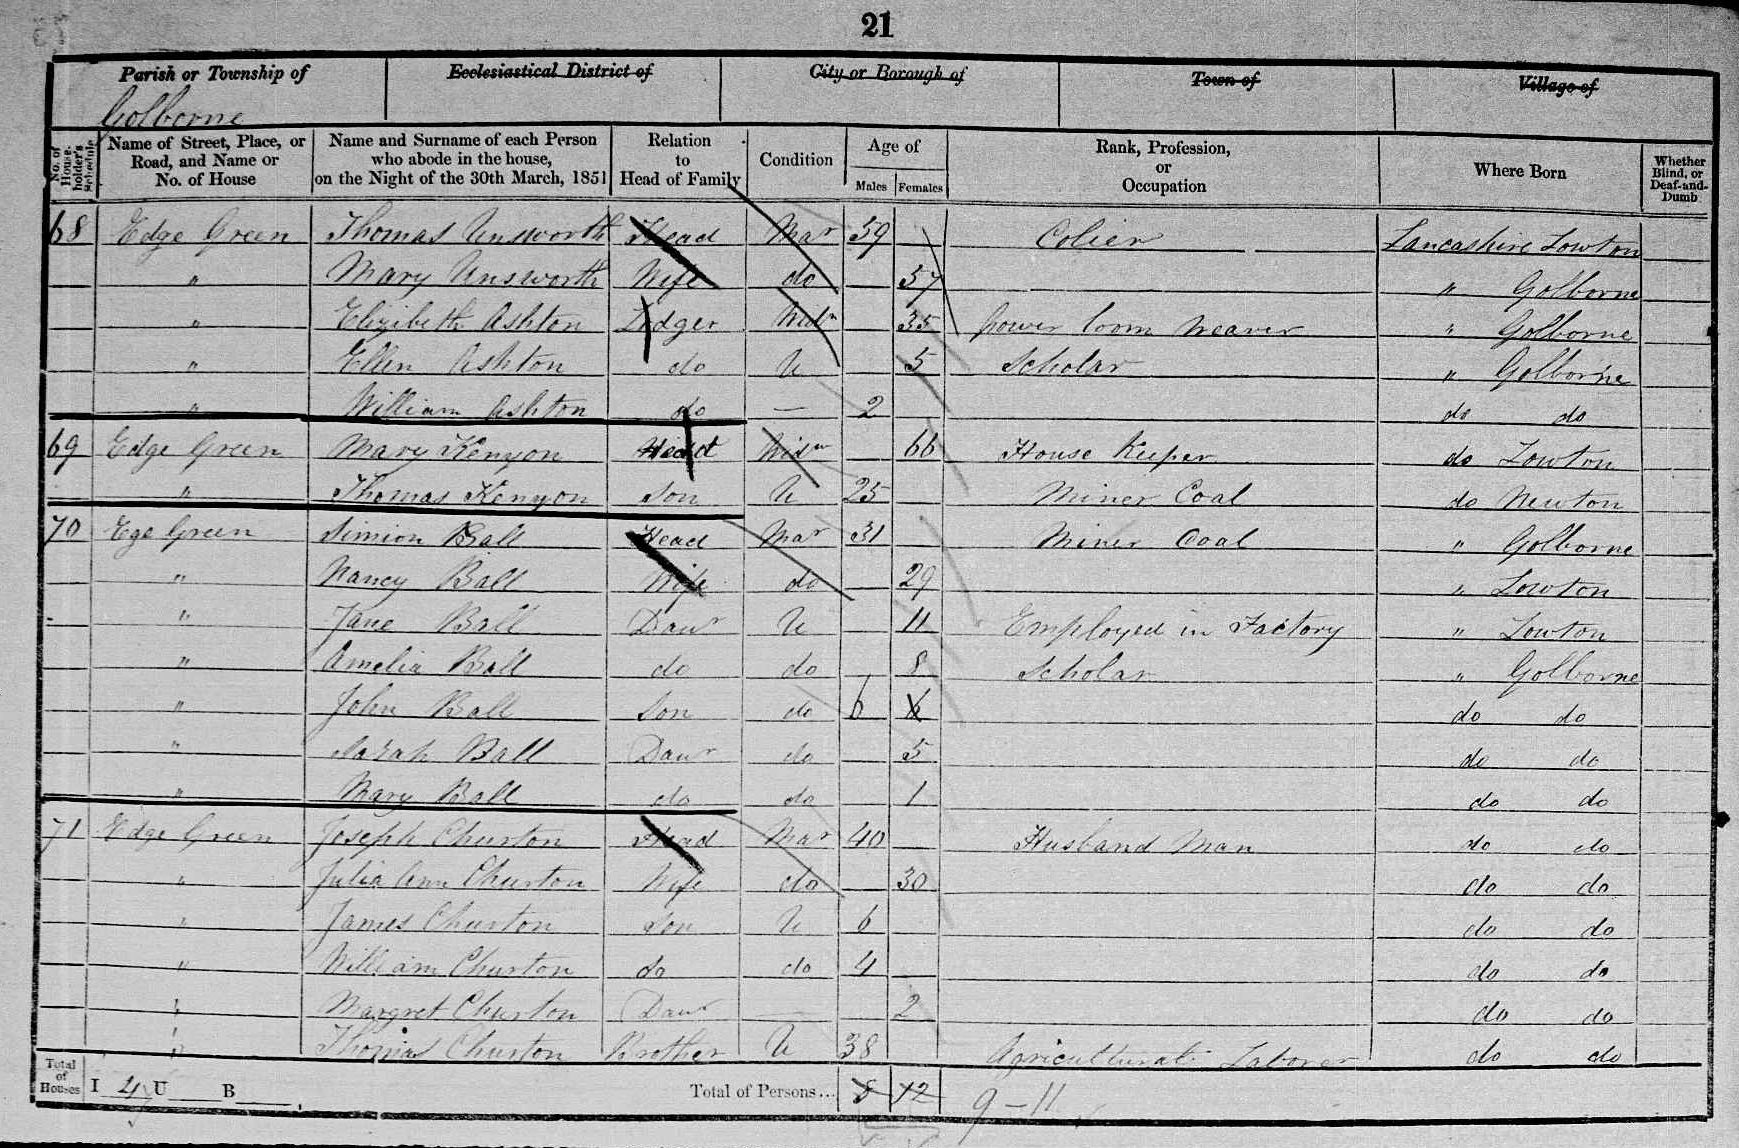 21
Parish or Township of Ecclesiastical District of City or Borough of Town of Village of
Golborne
No. of House-holder's Schedule
Name of Street, Place, or Road, and Name or No. of House
Name and Surname of each Person who abode in the house, on the Night of the 30th March, 1851
Relation to Head of Family
Condition
Age of
Males Females
Rank, Profession, or Occupation
Where Born
Whether Blind, or Deaf-and-Dumb
68 Edge Green Thomas Unsworth Head Mar 59 Colier Lancashire Lowton
" Mary Unsworth Wife do 57 " Golborne
" Elizibeth Ashton Lodger Widn 35 power loom Weaver " Golborne
" Ellen Ashton do U 5 Scholar " Golborne
" William Ashton do — 2 do do
69 Edge Green Mary Kenyon Head Widw 66 House Keeper do Lowton
" Thomas Kenyon Son U 25 Miner Coal do Newton
70 Ege Green Simion Ball Head Mar 31 Miner Coal " Golborne
" Nancy Ball Wife do 29 " Lowton
" Jane Ball Daur U 11 Employed in Factory " Lowton
" Amelia Ball do do 8 Scholar " Golborne
" John Ball Son do 6 6 do do
" Sarah Ball Daur do 5 do do
" Mary Ball do do 1 do do
71 Edge Green Joseph Churton Head Mar 40 Husband Man do do
" Julia Ann Churton Wife do 30 do do
" James Churton Son U 6 do do
" William Churton do do 4 do do
" Margret Churton Daur — 2 do do
" Thomas Churton Brother U 38 Agricultural Laborer do do
Total of Houses I 4 U B Total of Persons... 8 12 9-11